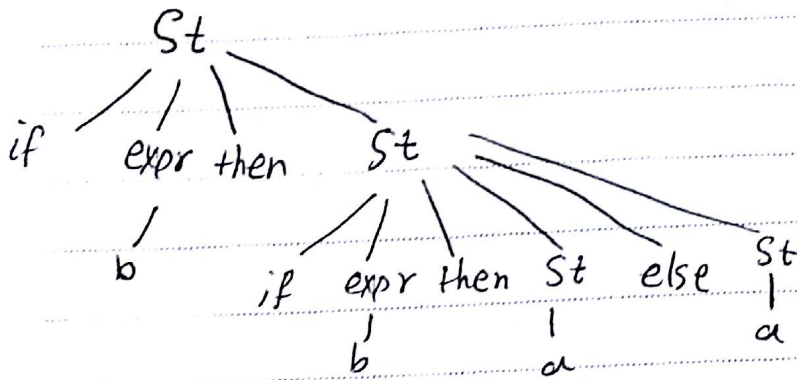 St
if expr then St
b if expr then St else St
b a a